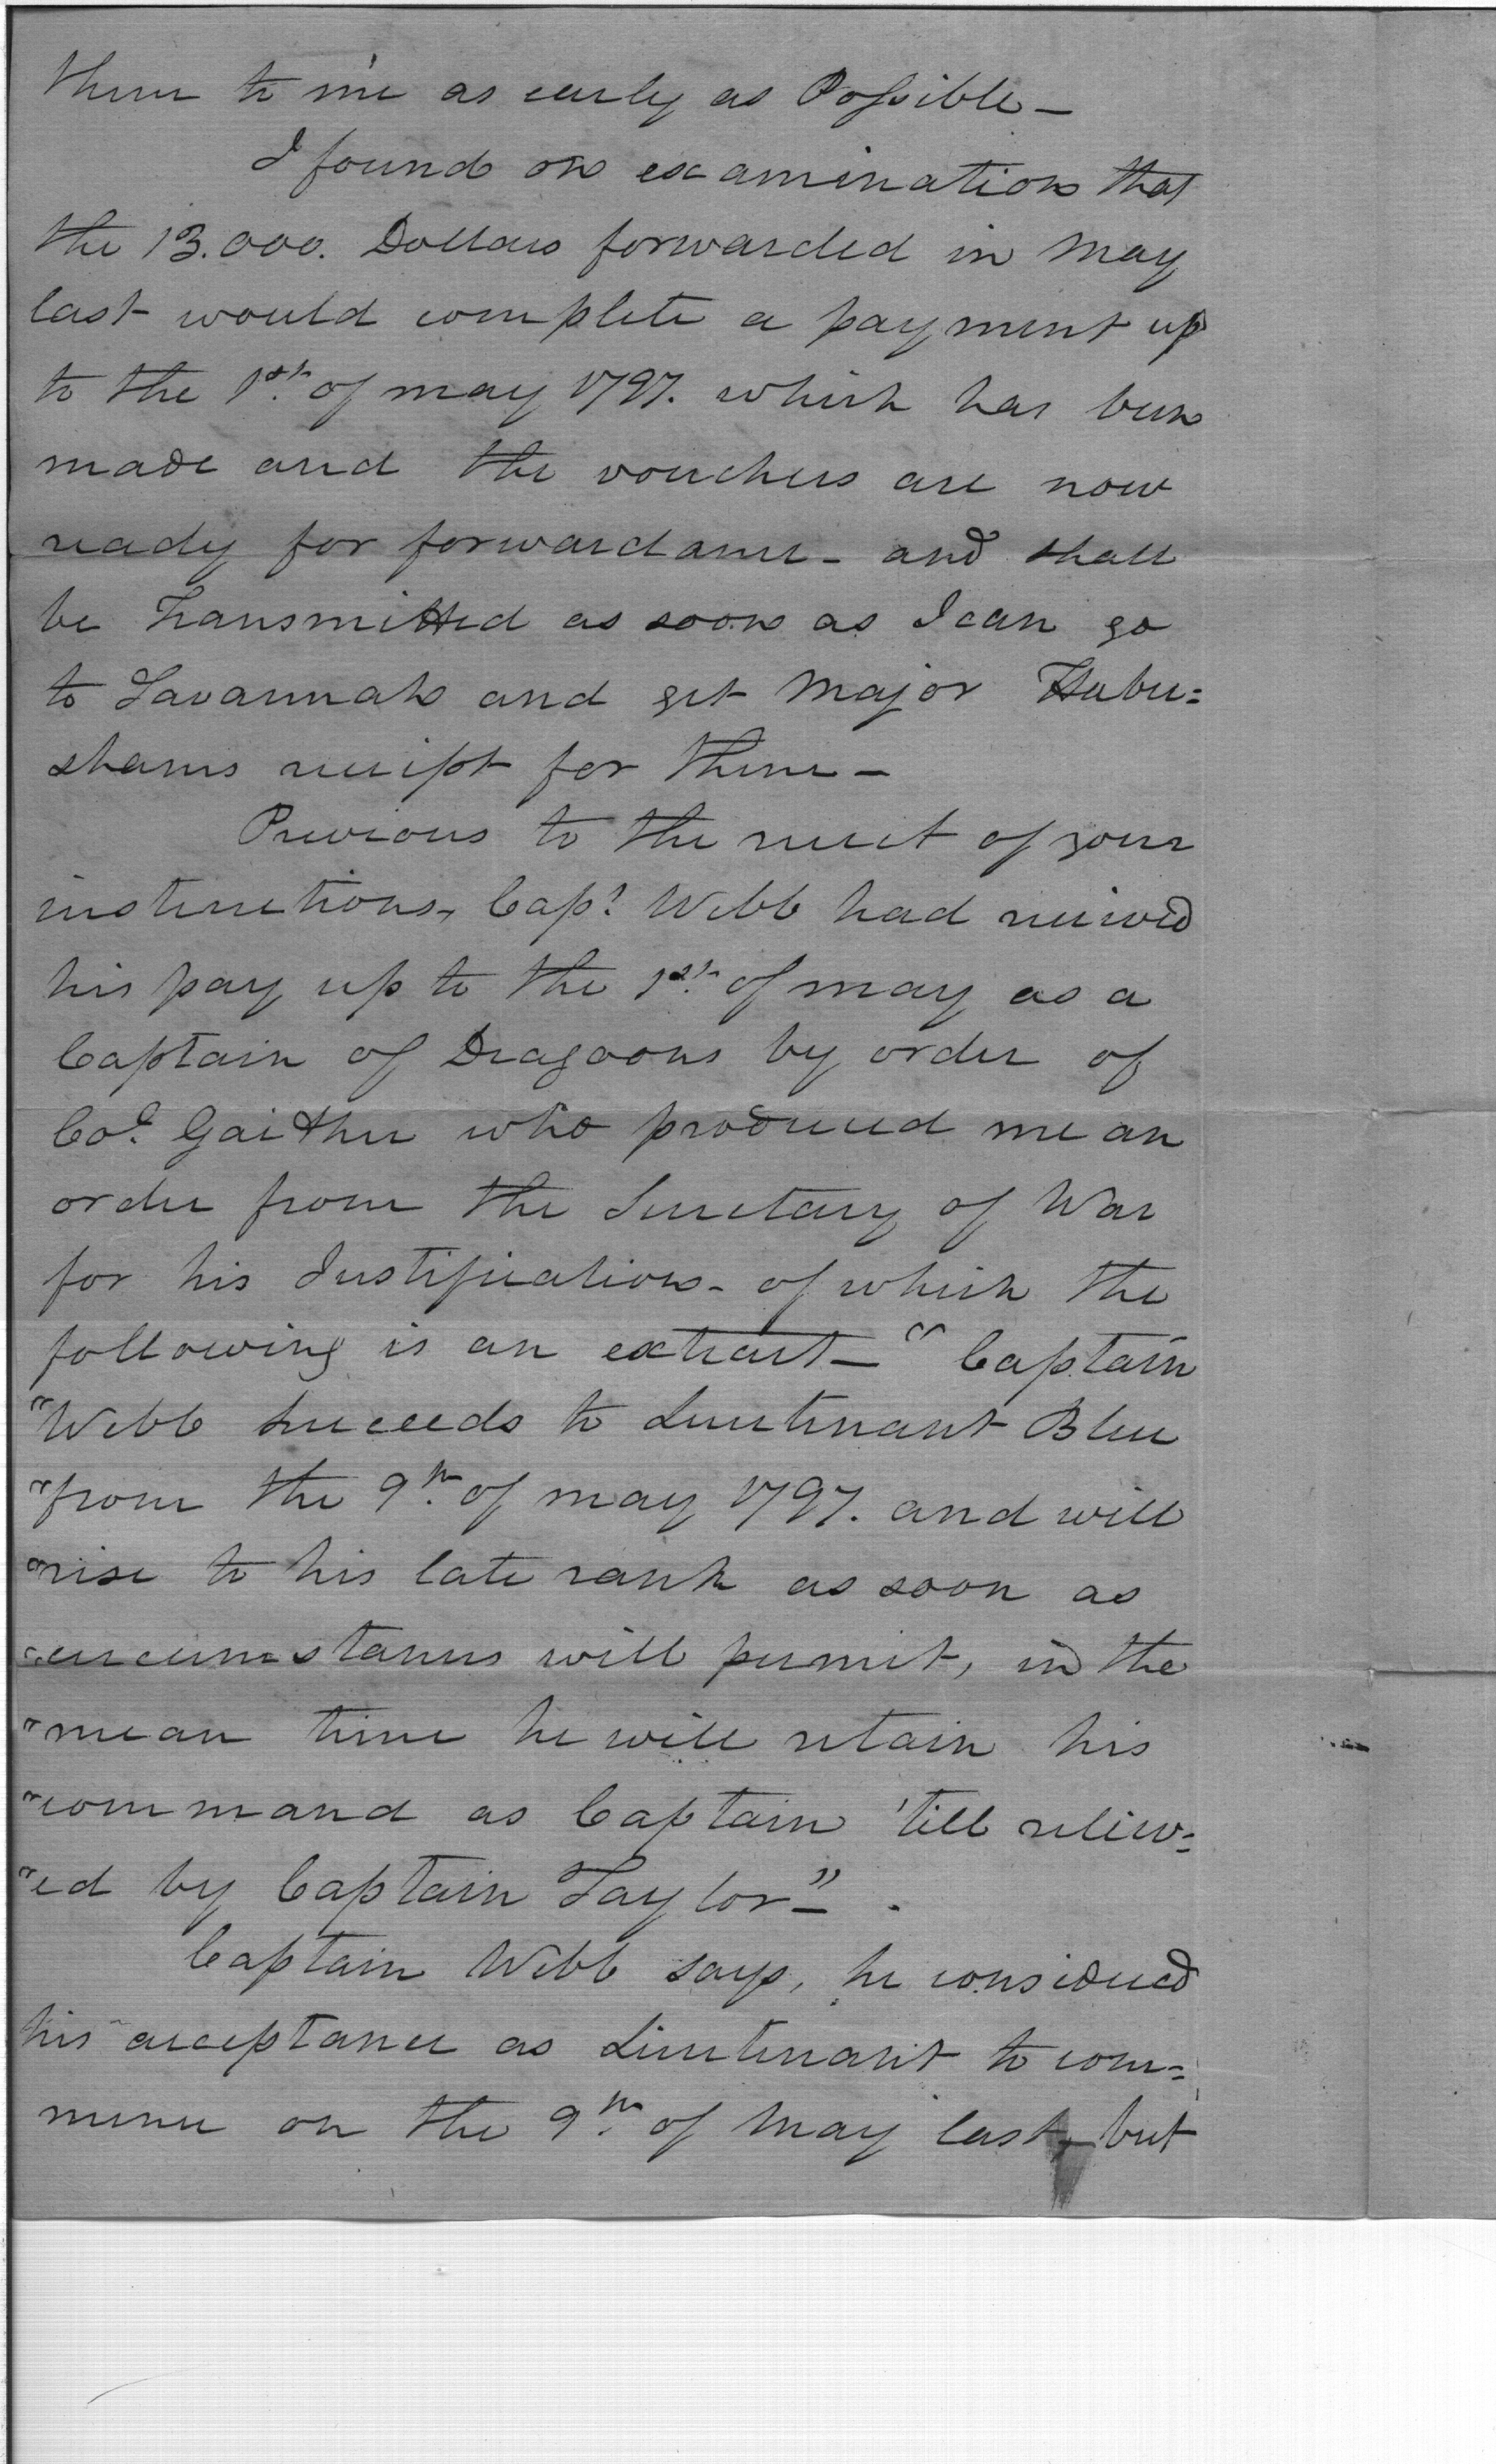 them to me as early as Possible—
I found on examination that
the 13.000. Dollars forwarded in May
last would complete a payment up
to the 1st. of may 1797. which has been
made and the vouchers are now
ready for forwardance - and shall
be Transmitted as soon as I can go
to Savannah and get Major Haber=
shams receipt for them—
Previous to the receit of your
instructions, Capt. Webb had received
his pay up to the 1st. of may as a
Captain of Dragoons by order of
Col. Gaither who produced me an
order from the Secretary of War
for his Justification - of which the
following is an extract— " Captain
"Webb succeeds to Lieutenant Blue
"from the 9th. of may 1797. and will
"rise to his late rank as soon as
"circumstances will permit, in the
"mean time he will retain his
"command as Captain 'till reliev=
"ed by Captain Taylor—" .
Captain Webb says, he considered
his acceptance as Lieutenant to com=
mence on the 9th. of May last, but